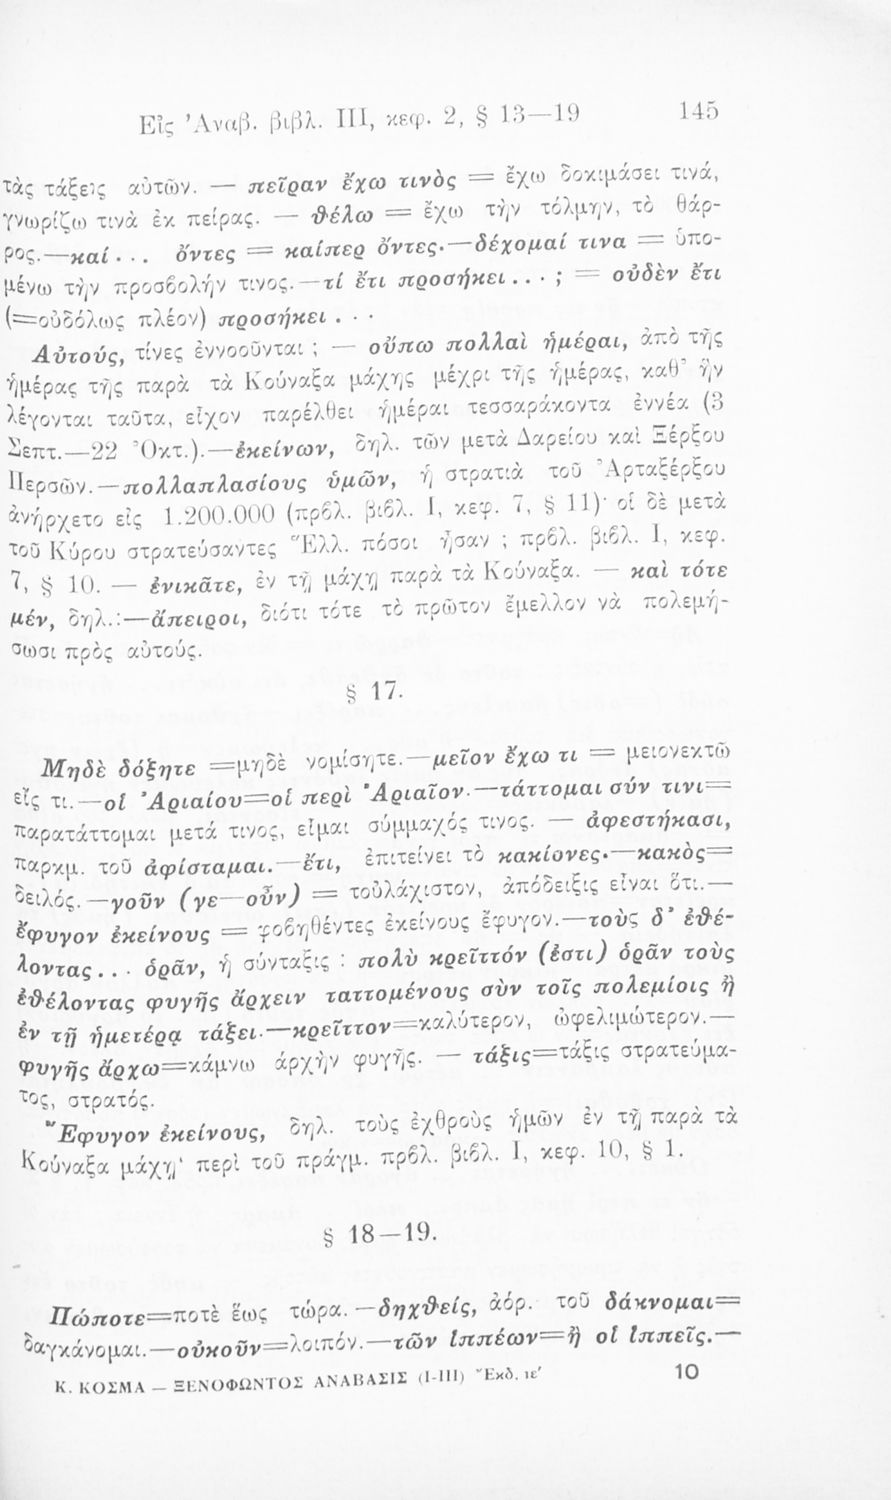 Εἰς Ἀναβ. βιβλ. III, κεφ. 2, § 13—19 145
τὰς τάξεις αὐτῶν. — πεῖραν ἔχω τινὸς = ἔχω δοκιμάσει τινά,
γνωρίζω τινὰ ἐκ πείρας. — θέλω = ἔχω τὴν τόλμην, τὸ θάρ-
ρος.—καί... ὄντες = καίπερ ὄντες.—δέχομαί τινα = ὑπο-
μένω τὴν προσβολήν τινος.—τί ἔτι προσήκει...; = οὐδὲν ἔτι
(=οὐδόλως πλέον) προσήκει...
Αὐτούς, τίνες ἐννοοῦνται; — οὔπω πολλαὶ ἡμέραι, ἀπὸ τῆς
ἡμέρας τῆς παρὰ τὰ Κούναξα μάχης μέχρι τῆς ἡμέρας, καθ' ἣν
λέγονται ταῦτα, εἶχον παρέλθει ἡμέραι τεσσαράκοντα ἐννέα (3
Σεπτ.—22 Ὀκτ.).—ἐκείνων, δηλ. τῶν μετὰ Δαρείου καὶ Ξέρξου
Περσῶν.—πολλαπλασίους ὑμῶν, ἡ στρατιὰ τοῦ Ἀρταξέρξου
ἀνήρχετο εἰς 1.200.000 (πρβλ. βιβλ. I, κεφ. 7, § 11)· οἱ δὲ μετὰ
τοῦ Κύρου στρατεύσαντες Ἕλλ. πόσοι ἦσαν; πρβλ. βιβλ. I, κεφ.
7, § 10. — ἐνικᾶτε, ἐν τῇ μάχῃ παρὰ τὰ Κούναξα. — καὶ τότε
μέν, δηλ.:—ἄπειροι, διότι τότε τὸ πρῶτον ἔμελλον νὰ πολεμή-
σωσι πρὸς αὐτούς.
§ 17.
Μηδὲ δόξητε =μηδὲ νομίσητε.—μεῖον ἔχω τι = μειονεκτῶ
εἴς τι.—οἱ Ἀριαίου=οἱ περὶ Ἀριαῖον.—τάττομαι σύν τινι=
παρατάττομαι μετά τινος, εἶμαι σύμμαχός τινος. — ἀφεστήκασι,
παρκμ. τοῦ ἀφίσταμαι.—ἔτι, ἐπιτείνει τὸ κακίονες.—κακὸς=
δειλός.—γοῦν (γε—οὖν) = τοὐλάχιστον, ἀπόδειξις εἶναι ὅτι.—
ἔφυγον ἐκείνους = φοβηθέντες ἐκείνους ἔφυγον.—τοὺς δ' ἐθέ-
λοντας... ὁρᾶν, ἡ σύνταξις: πολὺ κρεῖττόν (ἐστι) ὁρᾶν τοὺς
ἐθέλοντας φυγῆς ἄρχειν ταττομένους σὺν τοῖς πολεμίοις ἢ
ἐν τῇ ἡμετέρᾳ τάξει.—κρεῖττον=καλύτερον, ὠφελιμώτερον.—
φυγῆς ἄρχω=κάμνω ἀρχὴν φυγῆς. — τάξις=τάξις στρατεύμα-
τος, στρατός.
Ἔφυγον ἐκείνους, δηλ. τοὺς ἐχθροὺς ἡμῶν ἐν τῇ παρὰ τὰ
Κούναξα μάχῃ· περὶ τοῦ πράγμ. πρβλ. βιβλ. I, κεφ. 10, § 1.
§ 18—19.
Πώποτε=ποτὲ ἕως τώρα.—δηχθείς, ἀόρ. τοῦ δάκνομαι=
δαγκάνομαι.—οὐκοῦν=λοιπόν.—τῶν ἱππέων=ἢ οἱ ἱππεῖς.—
Κ. ΚΟΣΜΑ — ΞΕΝΟΦΩΝΤΟΣ ΑΝΑΒΑΣΙΣ (I-III) Ἔκδ. ιε' 10